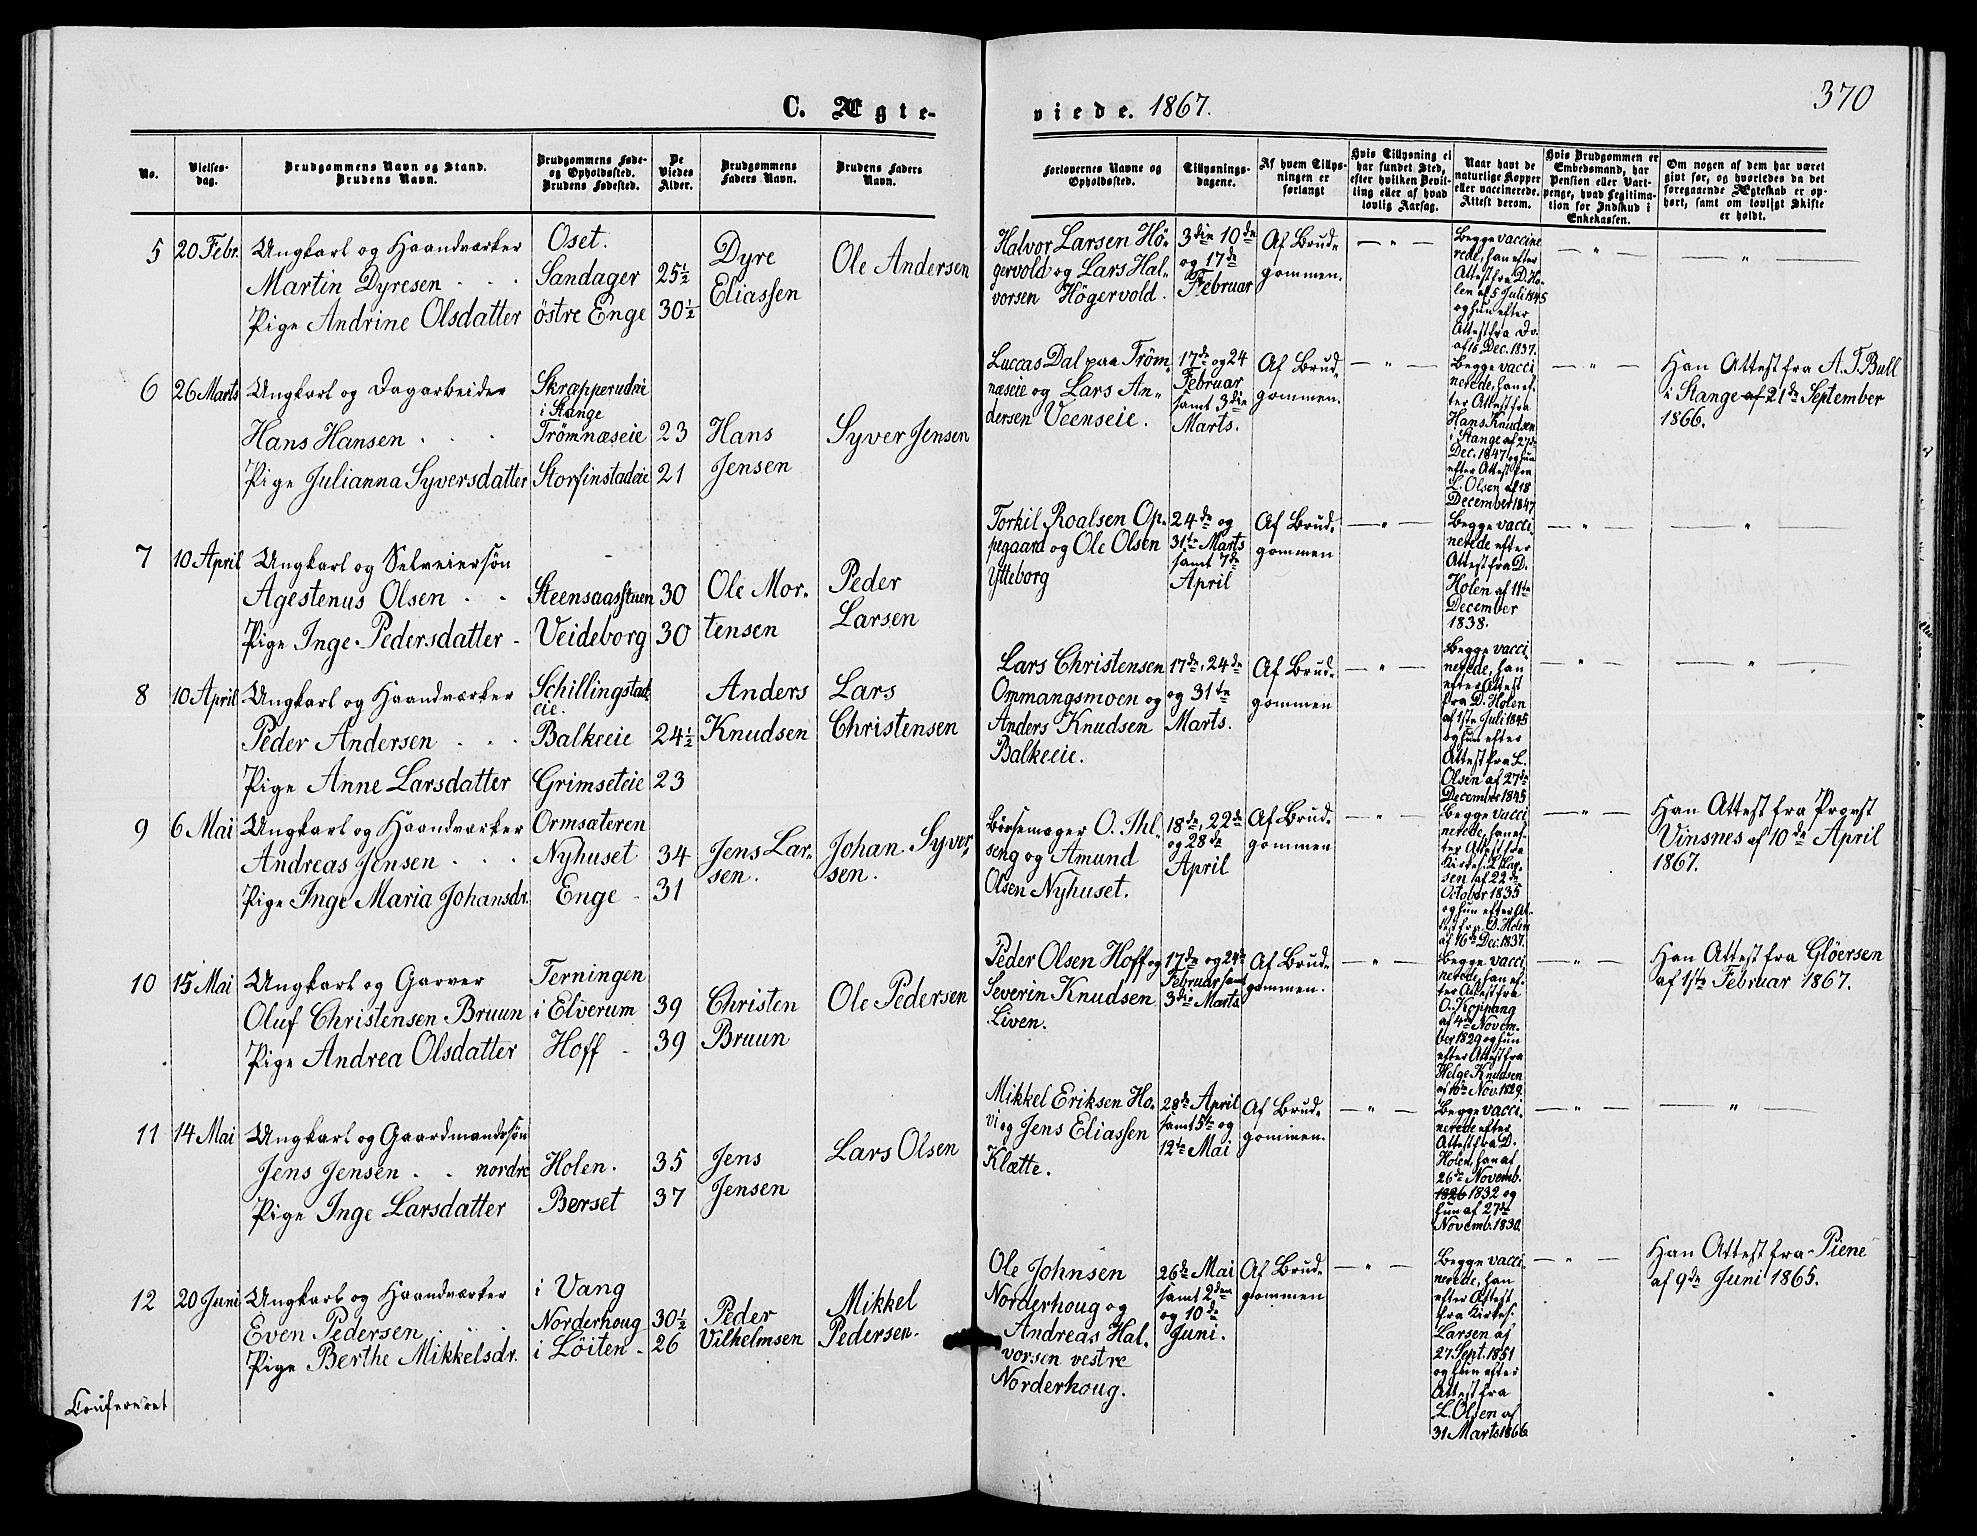 370
C. Ægte-
viede. 1867.
No.
Vielses-
dag.
Brudgommens Navn og Stand.
Brudens Navn.
Brudgommens Føde-
og Opholdssted.
Brudens Fødested.
De
Viedes
Alder.
Brudgommens
Faders Navn.
Brudens Faders
Navn.
Forlovernes Navne og
Opholdssted.
Tillysnings-
dagene.
Af hvem Tillys-
ningen er
forlangt
Hvis Tillysning ei
har fundet Sted,
efter hvilken Bevil-
ling eller af hvad
lovlig Aarsag.
Naar havt de
naturlige Kopper
eller vaccinerede.
Attest derom.
Hvis Brudgommen er
Embedsmand, har
Pension eller Vart-
penge, hvad Legitima-
tion for Indskud i
Enkekassen.
Om nogen af dem har været
givt før, og hvorledes da det
foregaaende Ægteskab er op-
hørt, samt om lovligt Skifte
er holdt.
5
20 Febr.
Ungkarl og Haandværker
Martin Dyresen
Pige Andrine Olsdatter
Oset.
Sandager
östre Enge
25½
30½
Dyre
Eliassen
Ole Andersen
Halvor Larsen Hö-
gervold og Lars Hal-
vorsen Högervold.
3die 10de
og 17de
Februar
Af Brud-
gommen.
— " —
Begge vaccine
rede, han efter
Attest fra D. Ho-
len af 5 Juli 1845
og hun efter
Attest fra Do.
af 16 Dec. 1837.
— " —
— " —
6
26 Marts
Ungkarl og Dagarbeider
Hans Hansen
Pige Julianna Syversdatter
Skræpperudeie
i Stange
Trömnæseie
Storfinstadeie
23
21
Hans
Jensen
Syver Jensen
Luccas Dal paa Tröm-
næseie og Lars An-
dersen Veenseie.
17de og 24
Februar
samt 3die
Marts.
Af Brud-
gommen.
— " —
Begge vacci
nerede, han ef-
ter Attest fra
Hans Knudsen
i Stange af 27de
Dec. 1847 og hun
efter Attest fra
L. Olsen af 18
December 1847
— " —
Han Attest fra A. T. Bull
i Stange af 21de September
1866.
7
10 April
Ungkarl og Selveiersön
Agestenus Olsen
Pige Inge Pedersdatter
Steensaasstuen
Veideborg
30
30
Ole Mor-
tensen
Peder
Larsen
Torkil Roalsen Op-
pegaard og Ole Olsen
Ytteborg
24de og
31te Marts
samt 7de
April
Af Brud-
gommen
— " —
Begge vacci-
nerede efter
Attest fra D.
Holen af 11te
December
1838.
— " —
— " —
8
10 April
Ungkarl og Haandværker
Peder Andersen
Pige Anne Larsdatter
Schillingstad-
eie.
Balkeeie
Grimseteie
24½
23
Anders
Knudsen
Lars
Christensen
Lars Christensen
Ommangsmoen og
Anders Knudsen
Balkeeie.
17de, 24de
og 31te
Marts.
Af Brud-
gommen
— " —
Begge vacci-
nerede, han
efter Attest
fra D. Holen
af 1ste Juli 1845
og hun efter
Attest fra L.
Olsen af 27de
December 1845
— " —
— " —
9
6 Mai
Ungkarl og Haandværker
Andreas Jensen
Pige Inge Maria Johansdr.
Ormsæteren
Nyhuset
Enge
34
31
Jens Lar-
sen.
Johan Syver-
sen.
Börsemager O. Thl-
seng og Amund
Olsen Nyhuset.
18de, 22de
og 28de
April
Af Brud-
gommen
— " —
Begge vacci
nerede, han ef-
ter Attest fra
Kirkes. L. Lar-
sen af 22de
October 1835
og hun efter At-
test fra D. Holen
af 16de Dec. 1837.
— " —
Han Attest fra Provst
Vinsnes af 10de April
1867.
10
15 Mai
Ungkarl og Garver
Oluf Christensen Bruun
Pige Andrea Olsdatter
Terningen
i Elverum
Hoff
39
39
Christen
Bruun
Ole Pedersen
Peder Olsen Hoff og
Severin Knudsen
Liven.
17de og 24de
Februar samt
3die Marts
Af Brud-
gommen.
— " —
Begge vacci
nerede, han ef-
ter Attest fra
O. Koppang
af 4de Novem-
ber 1829 og hun
efter Attest fra
Helge Knudsen
af 16de Nov. 1829.
— " —
Han Attest fra Glöersen
af 1ste Februar 1867.
11
14 Mai
Ungkarl og Gaardmandssön
Jens Jensen nordre
Pige Inge Larsdatter
Holen.
Berset
35
37
Jens
Jensen
Lars Olsen
Mikkel Eriksen Ho-
vi og Jens Eliassen
Klætte.
28de April
samt 5te og
12te Mai
Af Brud-
gommen.
— " —
Begge vacci-
nerede efter
Attest fra D.
Holen, han af
26de Novemb.
1826 1832 og
hun af 27de
Novemb. 1830.
— " —
— " —
12
20 Juni
Ungkarl og Haandværker
Even Pedersen
Pige Berthe Mikkelsdr.
i Vang
Norderhoug
i Löiten
30½
26
Peder
Vilhelmsen
Mikkel
Pedersen.
Ole Johnsen
Norderhoug og
Andreas Hal-
vorsen vestre
Norderhoug.
26de Mai
samt 2den
og 10de
Juni.
Af Brud-
gommen
— " —
Begge vacci-
nerede, han
efter Attest
fra Kirkes.
Larsen af
27 Sept. 1851
og hun efter
Attest fra
L. Olsen af
31 Marts 1866
— " —
Han Attest fra Piene
af 9de Juni 1865.
Confereret